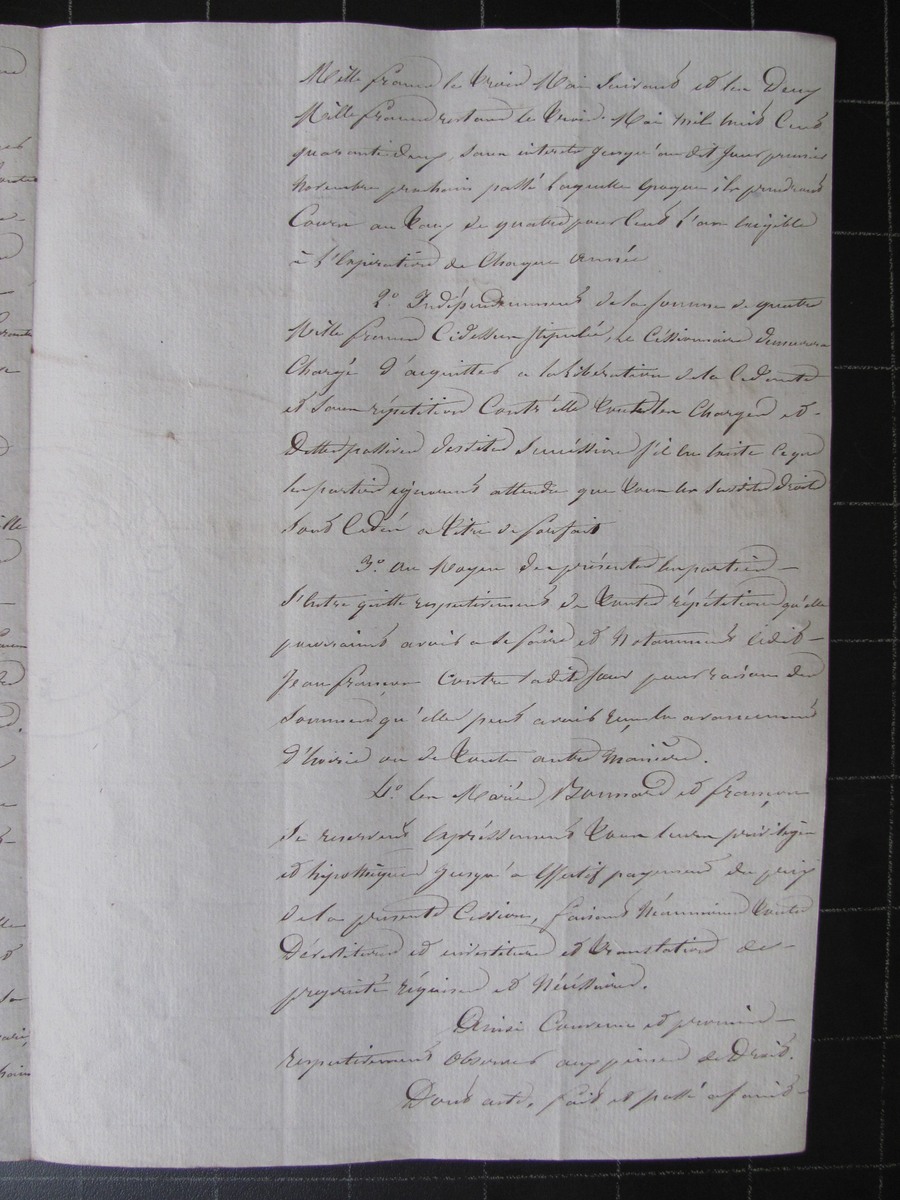 Mille francs le trois Mai suivant et les Deux
Mille francs restant le trois Mai mil huit Cent
quarante deux, sans interets jusqu'au dit jour premier
Novembre prochain passé laquelle époque ils prendront
Cours au taux de quatre pour Cent l'an Exigible
à l'Expiration de Chaque Année
2o Indépendamment de la somme de quatre
Mille francs Cidessus stipulée, le Céssionnaire demeurera
Chargé d'acquitter a la libération de la Cédante
et sans répétition Contr'elle toutes les Charges et
Dettes passives desdites Succéssions s'il en Existe ce que
les parties ignorent attendu que tous les susdits droits
sont Cédés a titre de forfait
3o Au Moyen des présentes les parties
s'entre quitte respectivement de toutes répétitions qu'elles
pourraient avoir a se faire et Notamment ledit
Jean françois Contre ladite pour raison des
sommes qu'elle peut avoir reçu en avancement
d'hoirie ou de toute autre manière.
4o les Mariés Bonnard et françois
se reservent Expréssement tous leurs privilèges
et hypothèques jusqu'a Effectif payement du prix
de la présente Cession, faisant Néanmoins toutes
Dévestitures et investiture et translation de
propriété réquises et Nécéssaires.
Ainsi Convenu et promis
respectivement observer aux peines de Droit.
Dont acte, fait et passé a